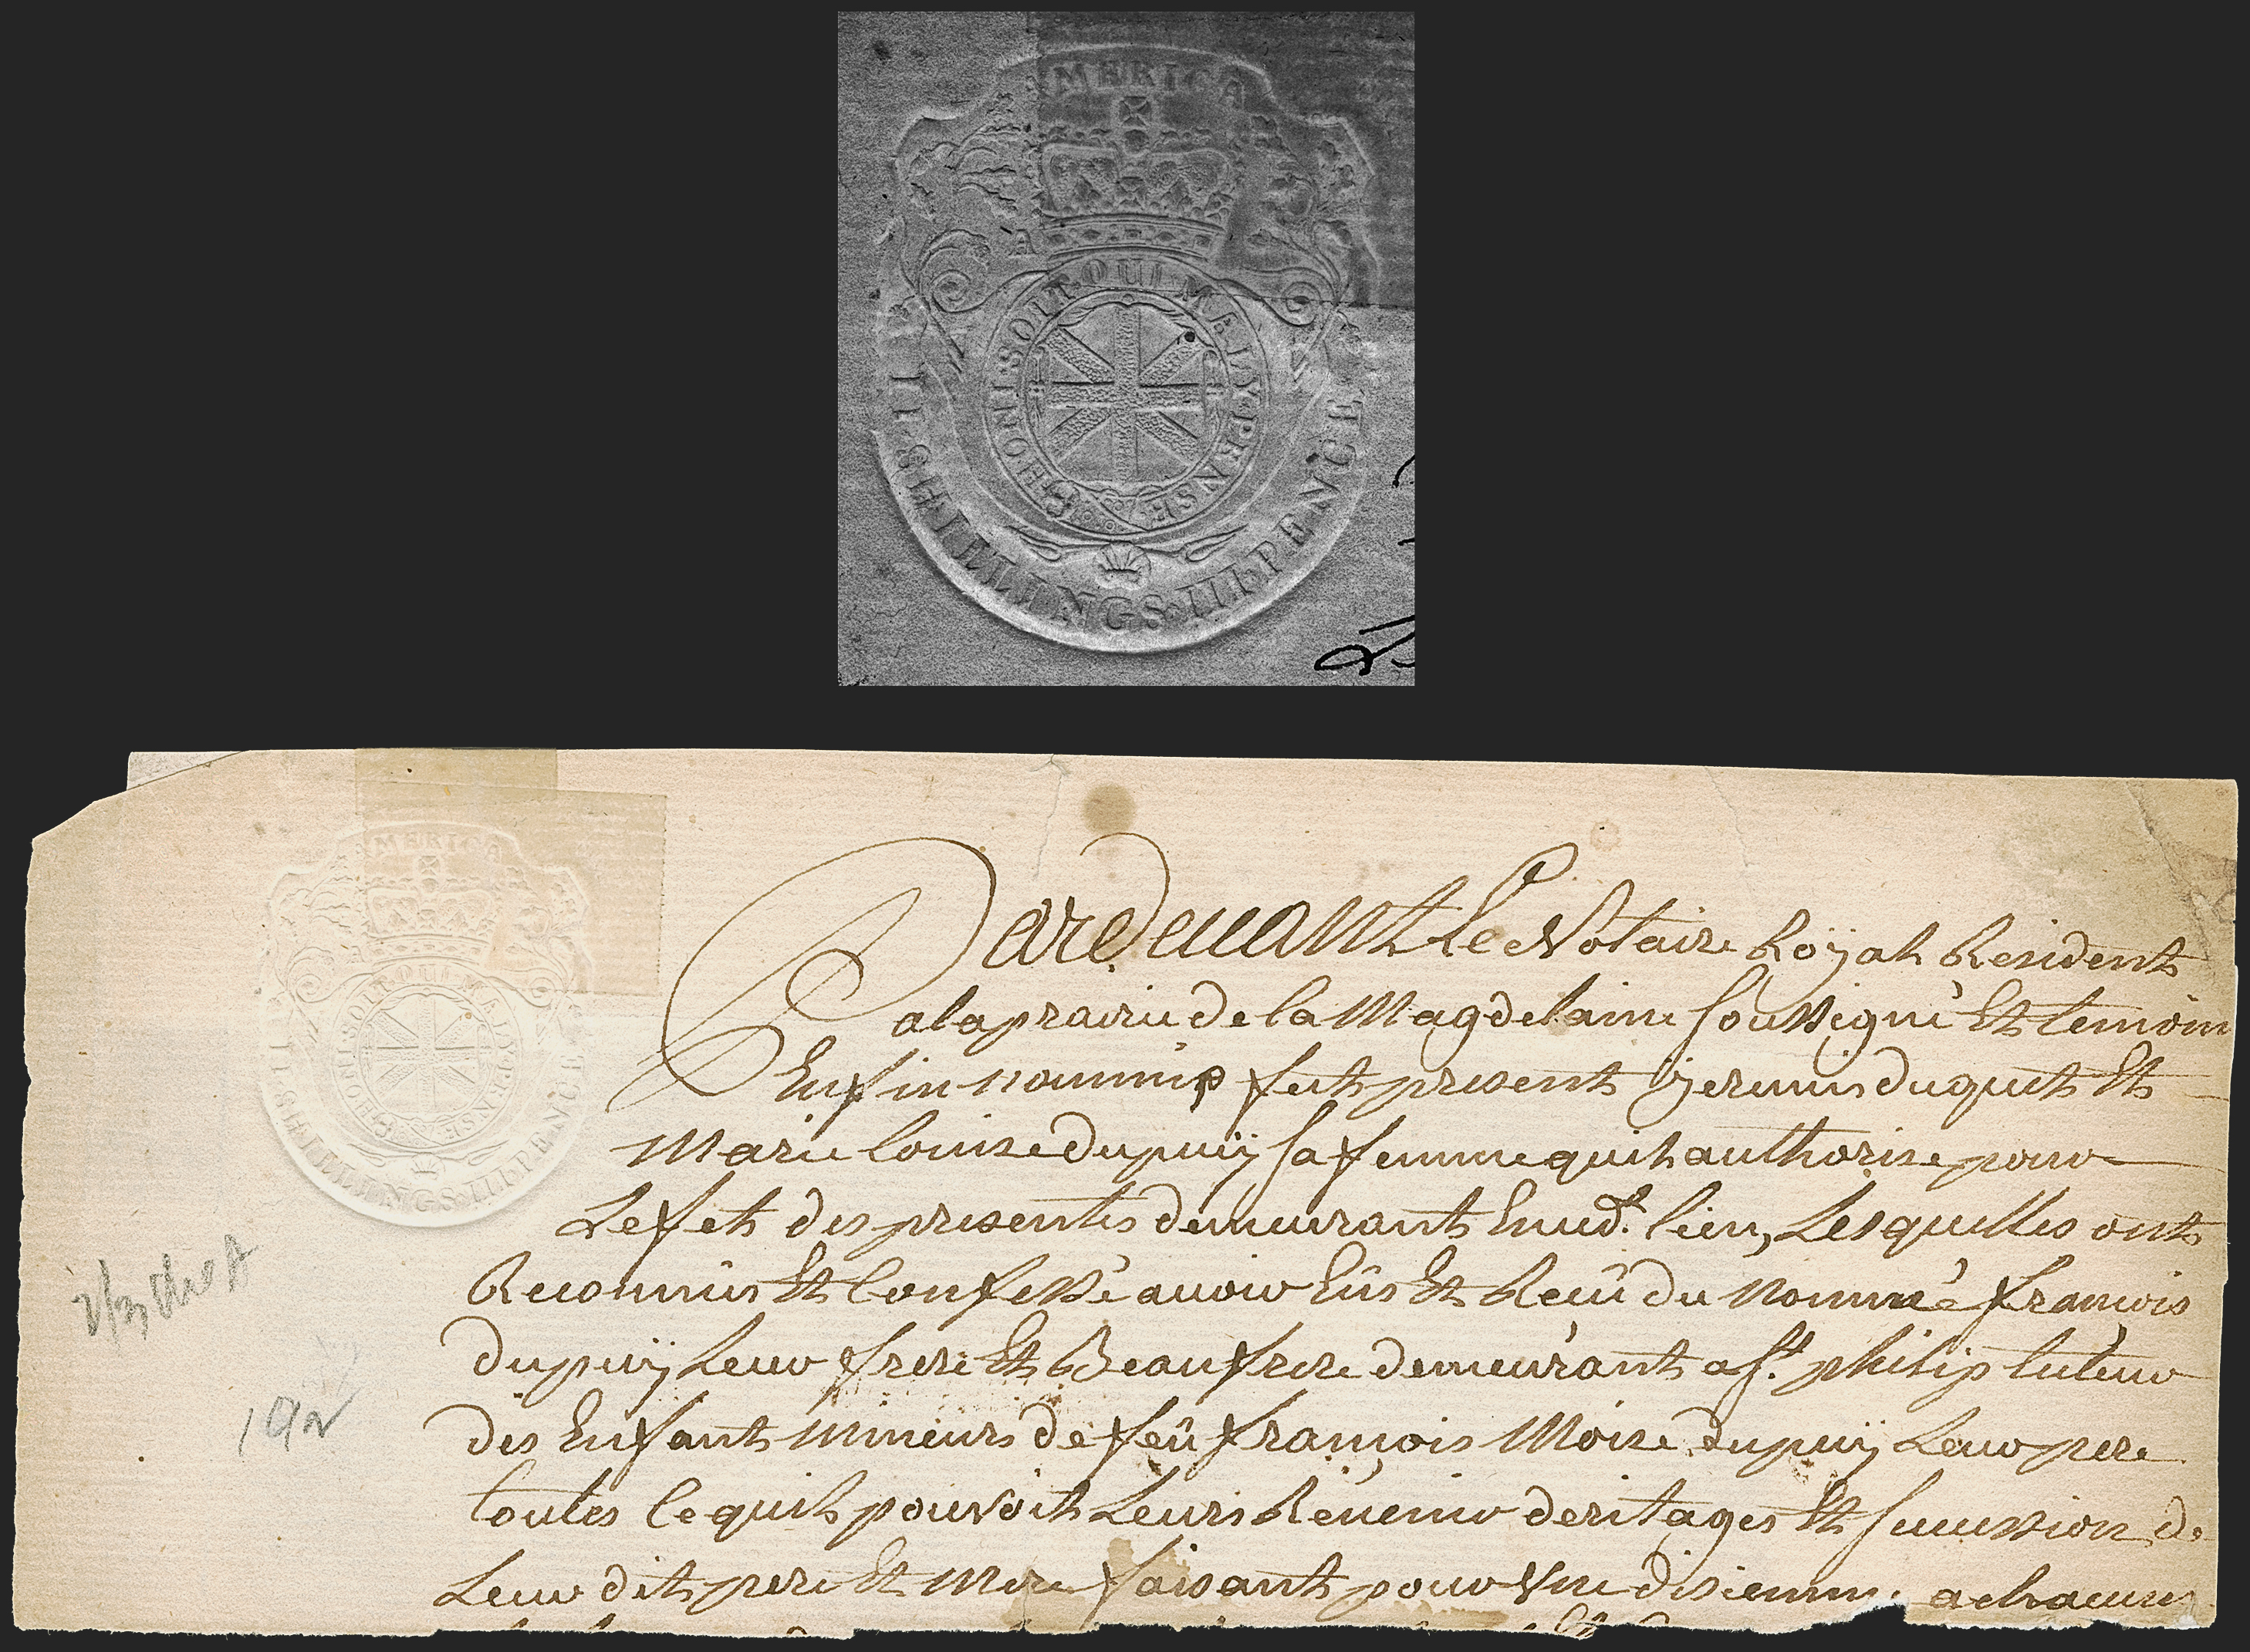 AMERICA
HONI·SOIT·QUI·MAL·Y·PENSE
II·SHILLINGS·III·PENCE
AMERICA
HONI·SOIT·QUI·MAL·Y·PENSE
II·SHILLINGS·III·PENCE
Pardeuant Le Notaire Roÿal Resident
a laprairie de la Magdelaine soussigné Et temoin
Enfin nommés fut present Duquet Et
Marie Louise dupuÿ sa femme quil authorise pour
Lefet des presentes demeurants Eud.t lieu, Lesquelles ont
Reconnus Et Confessé auoir Eüs Et Recû du Nommé francois
dupuÿ Leur frere Et Beaufrere demeurant a St. philip tuteur
des Enfants mineurs de feü francois Moise dupuÿ Leur pere
toutes Ce quil pouvoit Leurs Reuenir deritages Et sucession de
Leur dit pere Et Mere faisant pour Vne disiemme a chacune
192